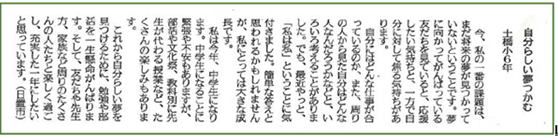 自分らしい夢つかむ
土橋小6年
今、私の一番の課題は、
まだ将来の夢が見つかって
いないということです。夢
に向かってがんばっている
友だちを見ていると、応援
したい気持ちと、一方で自
分に対して焦る気持ちがあ
ります。
自分にはどんな仕事が合
っているのか、また、周り
の人から見た自分はどんな
人なんだろうかなどと、い
ろいろ考えることがありま
した。でも、最近やっと、
「私は私」ということに気
付きました。簡単な答えと
思われるかもしれません
が、私にとっては大きな成
長です。
私は今年、中学生になり
ます。中学生になることに
緊張や不安もありますが、
部活や文化祭、教科別に先
生が代わる授業など、た
くさんの楽しみがありま
す。
これから自分らしい夢を
見つけるために、勉強や部
活を一生懸命がんばりま
す。そして、友だちや先生
方、家族など周りのたくさ
んの人たちと楽しく過ご
し、充実した一年にしたい
と思っています。（日置市）